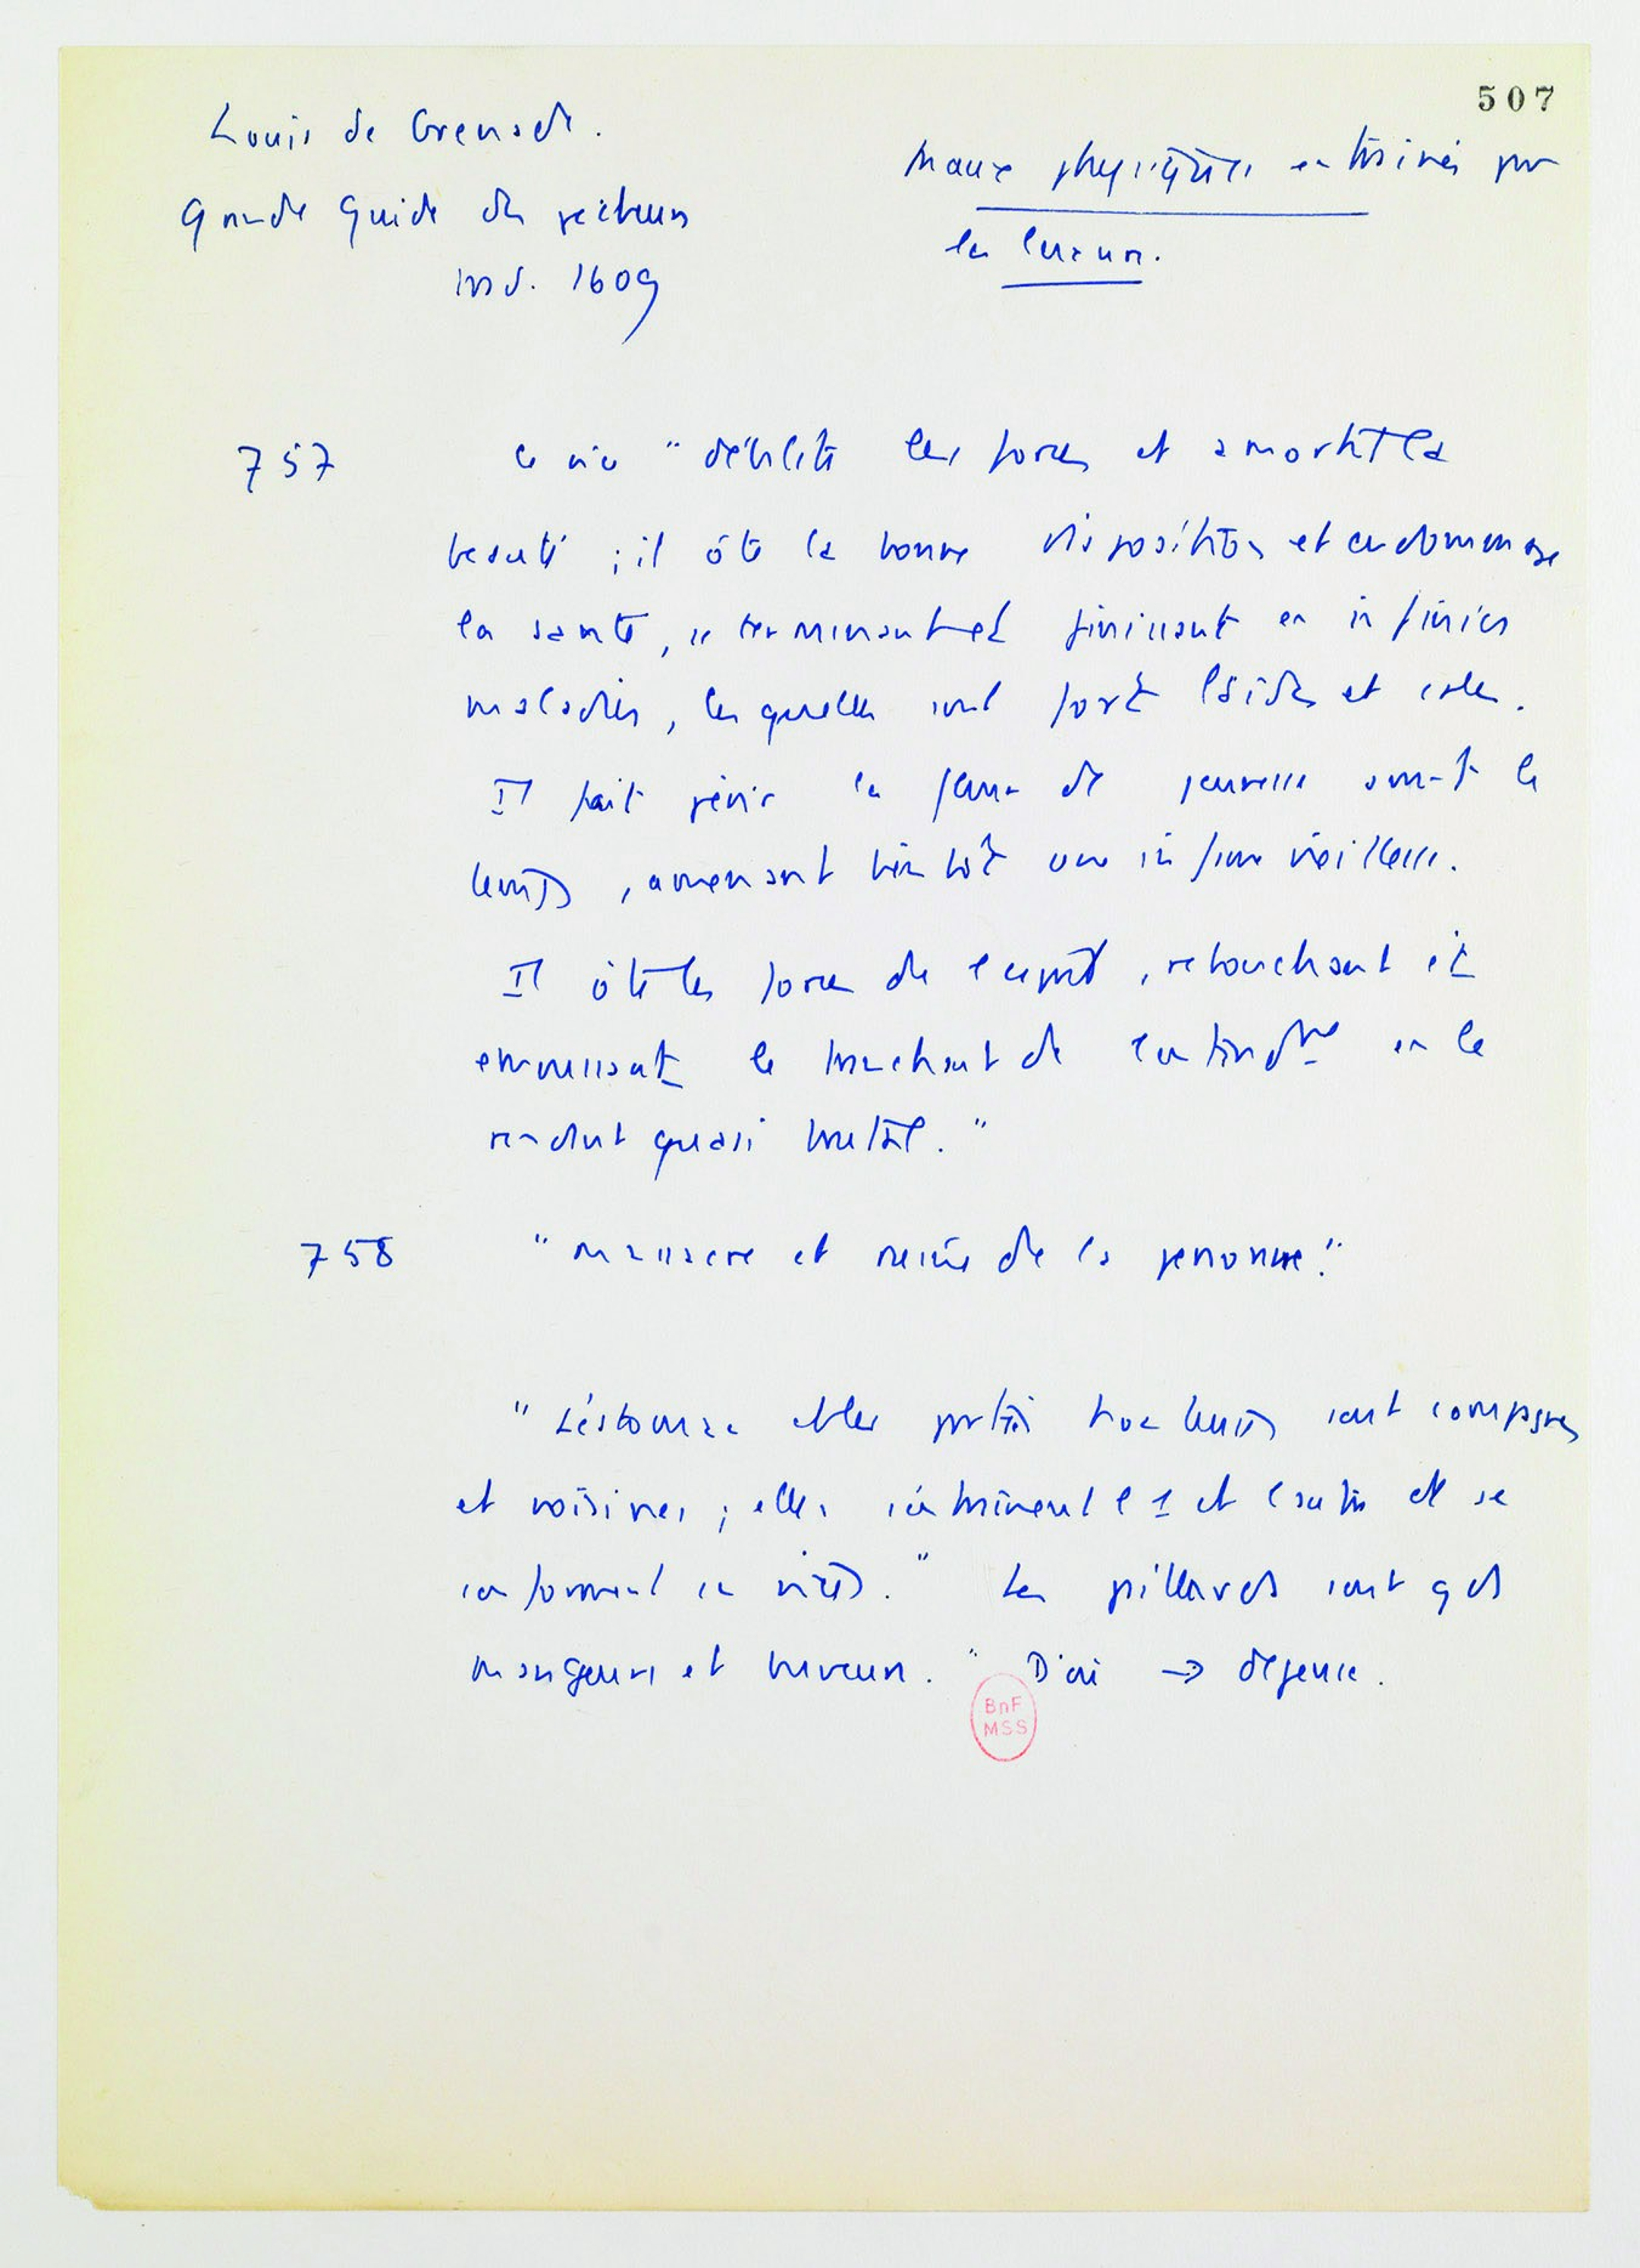 507
Louis de Grenade.
Grande Guide des pécheurs
trad. 1609
Maux physiques entraînés par
la luxure.
757 Ce vice "débilite les forces et amortit la
beauté ; il ôte la bonne disposition et endommage
la santé, se terminant et finissant en infinies
maladies, lesquelles sont fort laides et sales.
Il fait périr la fleur de jeunesse avant le
temps, amenant bientôt une infame vieillesse.
Il ôte les forces de l'esprit, rebouchant et
emoussant le tranchant de l'entendmt en le
rendant quasi brutal."
758 "massacre et ruine de la personne."
"L'éstomac et les parties honteuses sont compagnes
et voisines ; elles s'entraînent l'1 et l'autre et se
conforment en vices." Les paillards sont gds
mangeurs et buveurs." D'où → dépense.
BnF
MSS